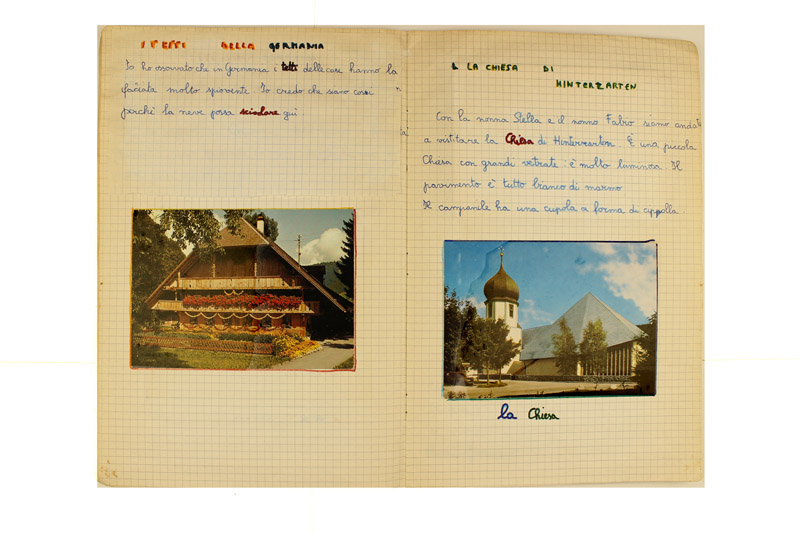 I TETTI DELLA GERMANIA
Io ho osservato che in Germania i tetti delle case hanno la
facciata molto spovente. Io credo che siano cosi
perchè la neve possa scivolare giù
LA CHIESA DI
HINTERZARTEN
Con la nonna Stella e il nonno Fabio siamo andati
a visitare la Chiesa di Hinterzarten. È una piccola
Chiesa con grandi vetrate: è molto luminosa. Il
pavimento è tutto bianco di marmo
Il campanile ha una cupola a forma di cipolla
la Chiesa